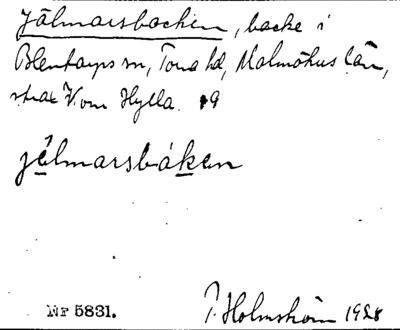 Jälmarsbacken, backe i
Blentarps sn, Torna hd, Malmöhus län,
strax V om Hylla. 9
jèlmarsbáken
Nr 5831. P. Holmström 1928